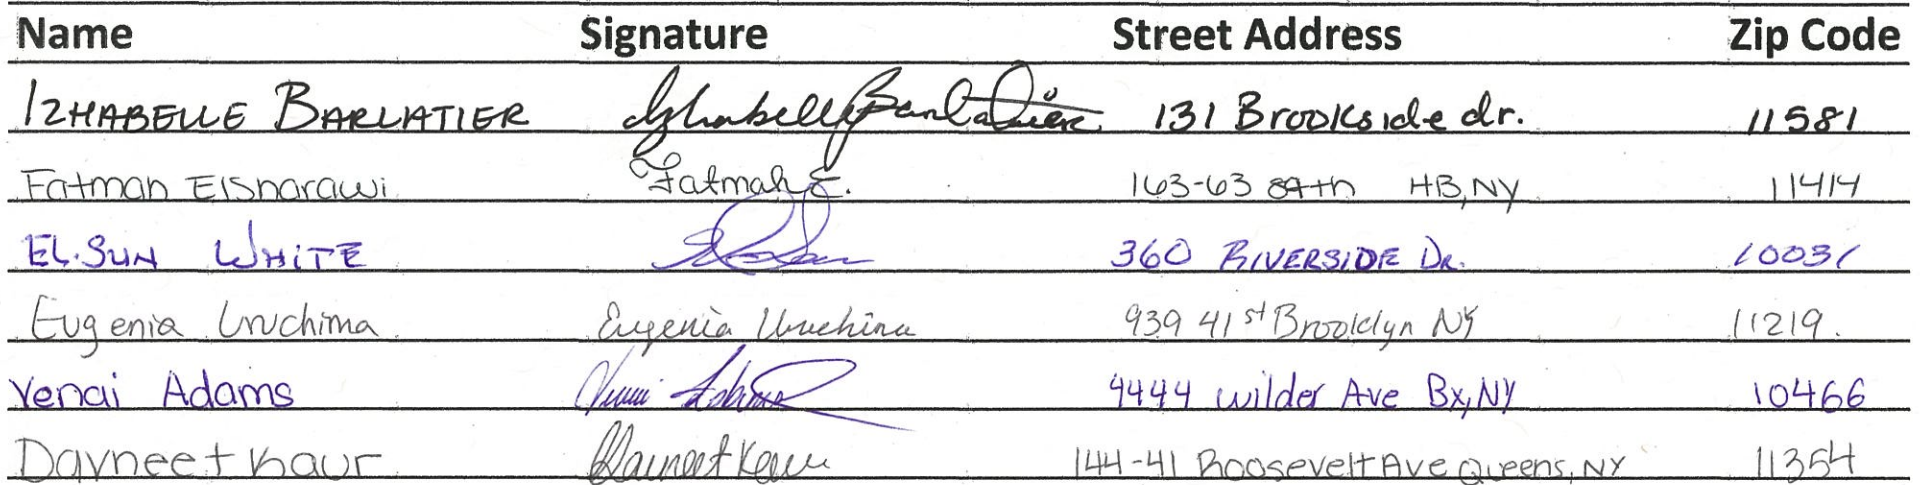 Name Signature Street Address Zip Code
IZHABELLE BARLATIER Izhabelle Barlatier 131 Brookside dr. 11581
Fatmah Elsharawi Fatmah E. 163-63 84th HB, NY 11414
EL.SUN WHITE 360 RIVERSIDE DR. 10031
Eugenia Uruchima Eugenia Uruchima 939 41st Brooklyn NY 11219.
Venai Adams 4444 wilder Ave Bx, NY 10466
Davneet Kaur Davneet Kaur 144-41 Roosevelt Ave Queens, NY 11354